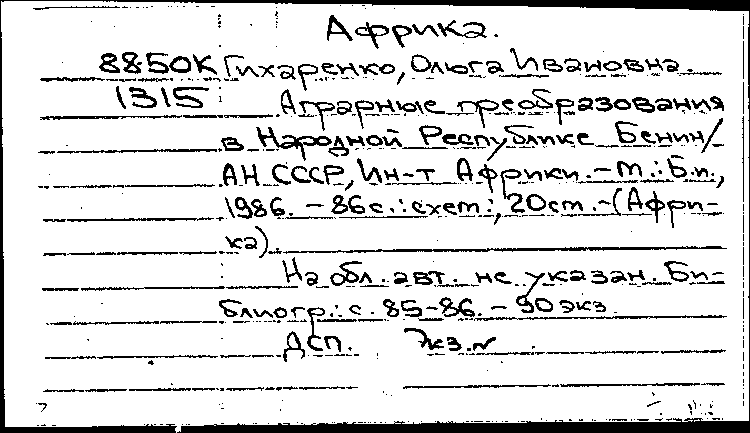 Африка.
8850К Гихаренко, Ольга Ивановна.
1315 Аграрные преобразования
в Народной Республике Бенин/
АН СССР, Ин-т Африки. - М.: Б.и.,
1986. - 86 с.: схем.; 20 см. - (Афри-
ка).
На обл. авт. не указан. Би-
блиогр.: с. 85-86. - 90 экз.
ДСП. Экз. №